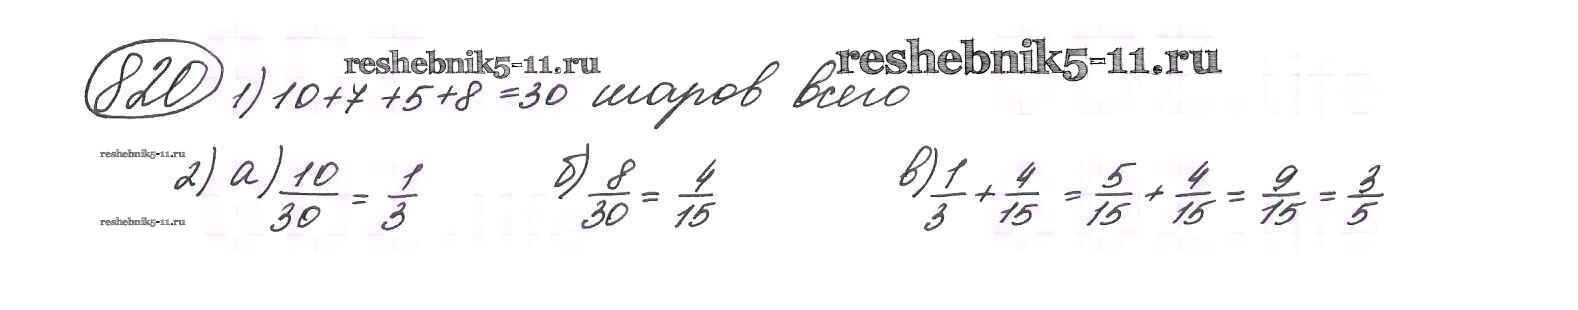 reshebnik5-11.ru reshebnik5-11.ru
820 1) 10+7+5+8=30 шаров всего
reshebnik5-11.ru
2) а) 10/30 = 1/3 б) 8/30 = 4/15 в) 1/3 + 4/15 = 5/15 + 4/15 = 9/15 = 3/5
reshebnik5-11.ru